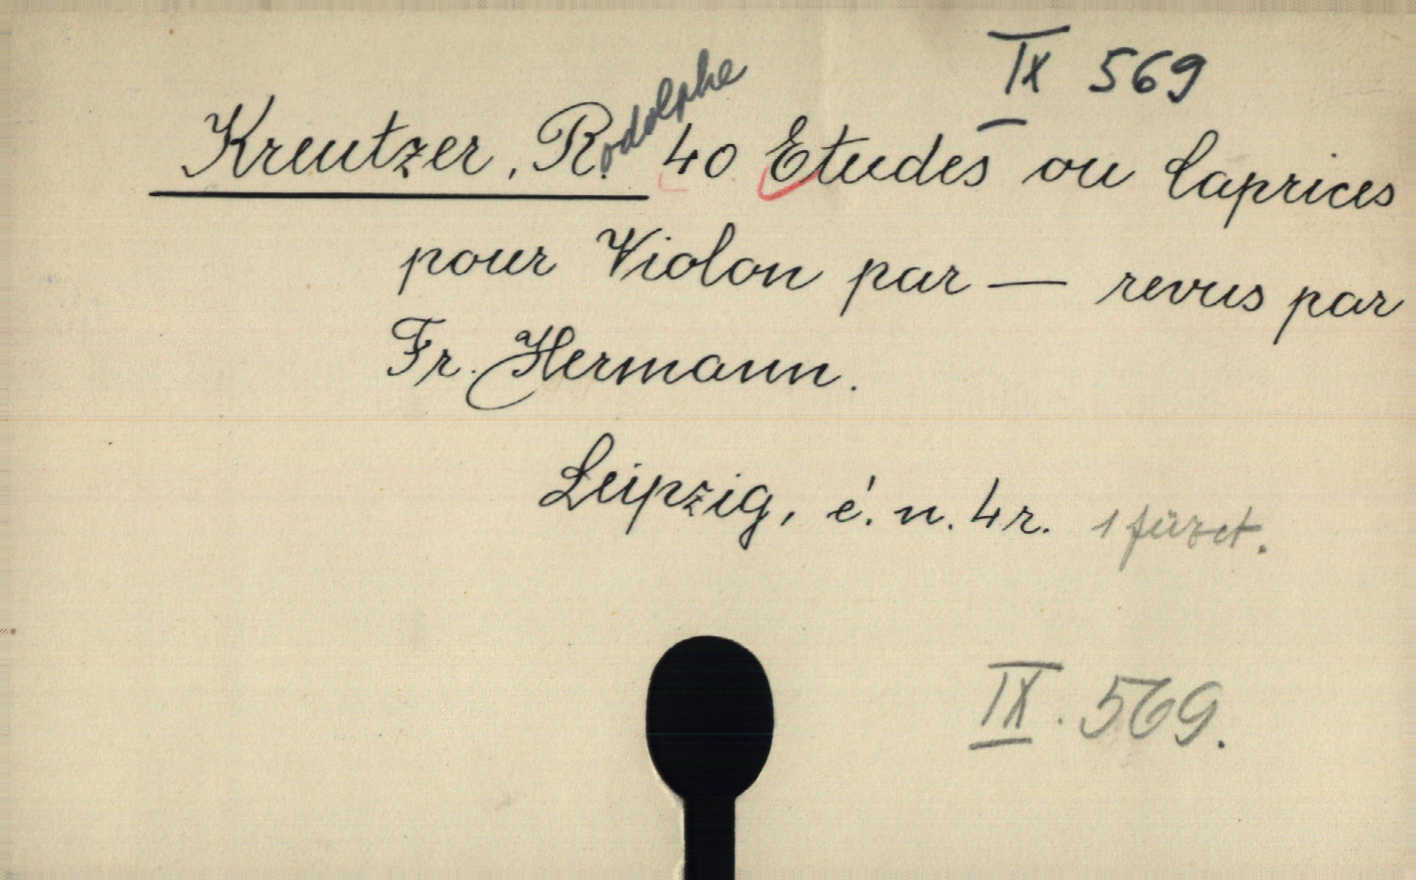 IX 569
Kreutzer, R.odolphe 40 Etudes ou Caprices
pour Violon par — revus par
Fr. Hermann.
Leipzig, é. n. 4r. 1 füzet.
IX. 569.